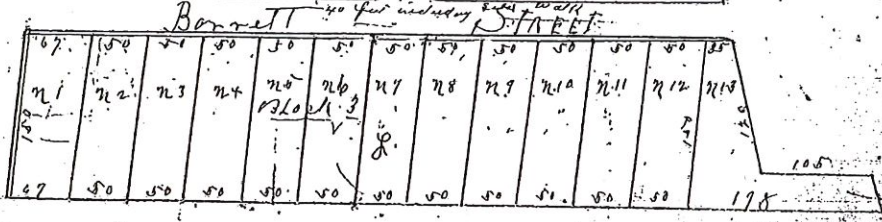 Barrett STREET
40 feet including side walk
67. 50 50 50 50 50 50 50 50 50 50 50 35
n1 n2 n3 n4 n5 n6 n7 n8 n9 n10 n11 n12 n13
BLOCK 3
105
47 50 50 50 50 50 50 50 50 50 50 50 178